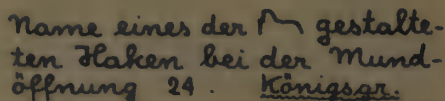 Name eines der gestalte-
ten Haken bei der Mund-
öffnung 24. Königsgr.